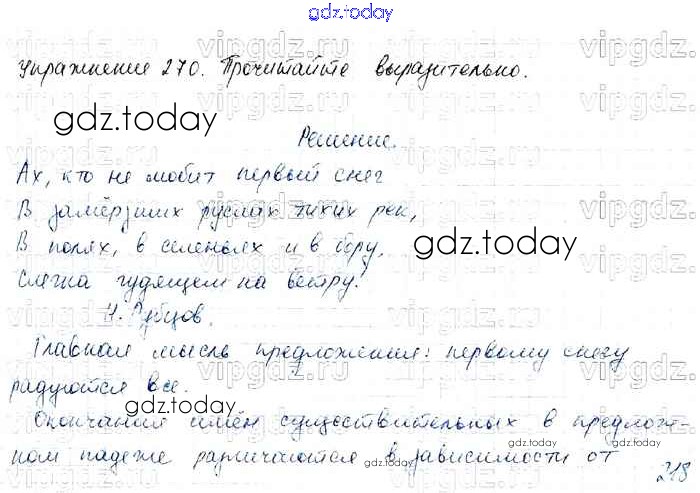 gdz.today
Упражнение 270. Прочитайте выразительно.
gdz.today
Решение.
Ах, кто не любит первый снег
В замёрзших руслах тихих рек,
В полях, в селеньях и в бору,
gdz.today
Слегка гудящем на ветру!
Н. Рубцов.
Главная мысль предложения: первому снегу
радуются все.
gdz.today
Окончания имён существительных в предлож-
gdz.today
ном падеже различаются в зависимости от
gdz.today
218